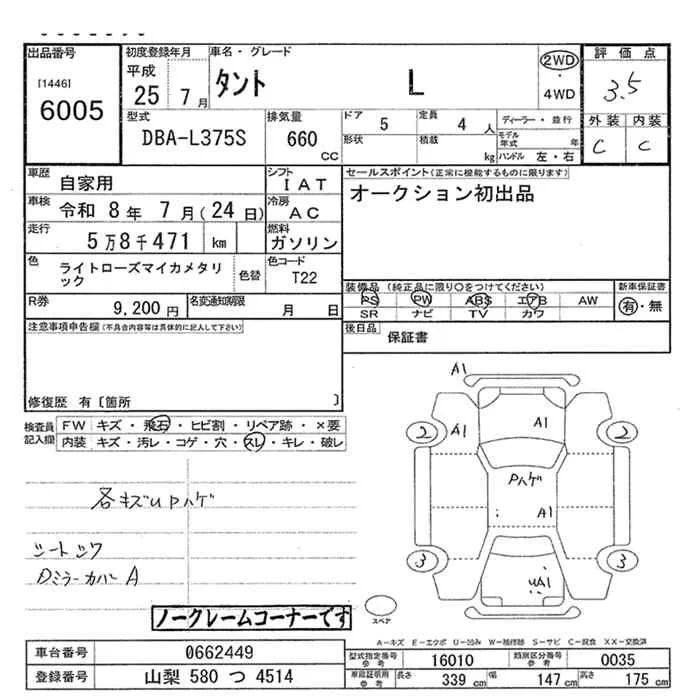 出品番号 初度登録年月 車名・グレード 評価点
[1446] 平成 2WD
6005 25 7月 タント L ・ 3.5
4WD
型式 排気量 ドア 5 定員 4人 ディーラー・並行 外装 内装
DBA-L375S 660 cc 形状 積載 kg モデル年式 年 C C
ハンドル 左・右
車歴 自家用 シフト IAT セールスポイント(正常に機能するものに限ります)
車検 令和 8年 7月(24日) 冷房 AC オークション初出品
走行 5万8千471 km 燃料 ガソリン
色 ライトローズマイカメタリック 色替 色コード T22
装備品(純正品に限り○をつけてください) 新車保証書
R券 9,200円 名変通知期限 月 日 PS PW ABS エアB AW 有・無
SR ナビ TV カワ
注意事項申告欄(不具合内容等は具体的に記入して下さい) 後日品 保証書
修復歴 有〔箇所 〕
検査員記入欄 FW キズ・飛石・ヒビ割・リペア跡・×要
内装 キズ・汚レ・コゲ・穴・スレ・キレ・破レ
各キズU Pハゲ
シートシワ
Dミラーカバー A
A1
2 A1 A1 2
Pハゲ
A1
3 3
UA1
ノークレームコーナーです
スペア
A-キズ E-エクボ U-凹み W-補修跡 S-サビ C-腐食 XX-交換済
車台番号 0662449 型式指定番号 参考 16010 類別区分番号 参考 0035
登録番号 山梨 580 つ 4514 車庫証明用 参考 長さ 339cm 幅 147cm 高さ 175cm